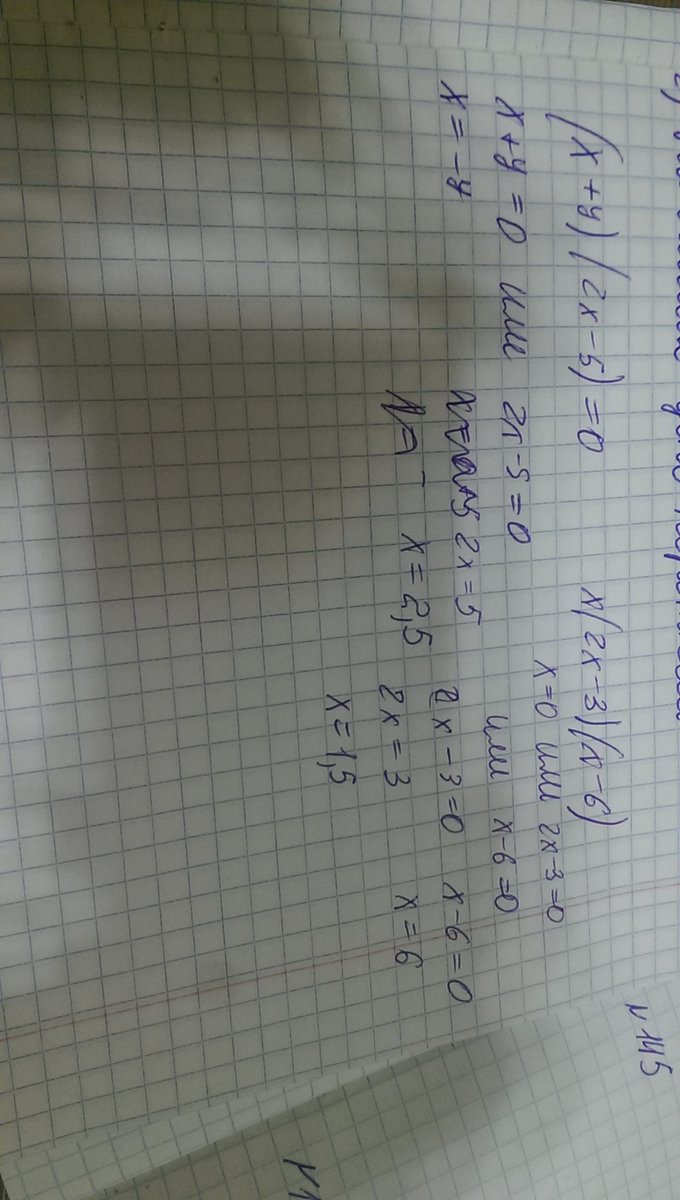 (x+y)(2x-5)=0
x+y=0 или 2x-5=0
x=-y
2x=5
x=2,5
x(2x-3)(x-6)
x=0 или 2x-3=0
или x-6=0
2x-3=0 x-6=0
2x=3 x=6
x=1,5
№145